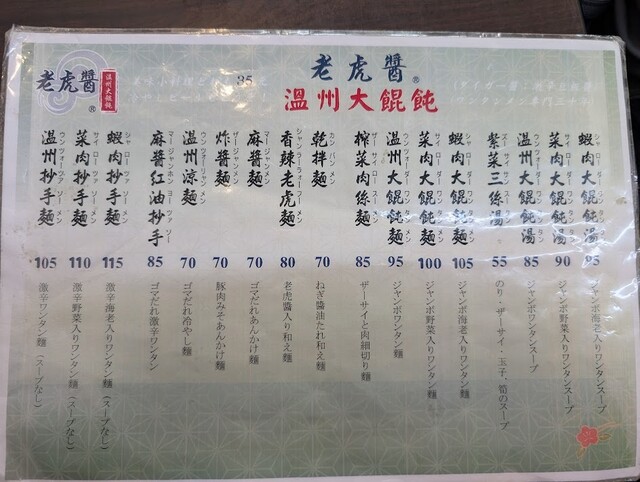 老虎醬®
溫州大餛飩
老虎醬
溫州大餛飩
®
蝦肉大餛飩湯
95
ジャンボ海老入りワンタンスープ
菜肉大餛飩湯
90
ジャンボ野菜入りワンタンスープ
溫州大餛飩湯
85
ジャンボワンタンスープ
紫菜三絲湯
55
のり・ザーサイ・玉子、筍のスープ
蝦肉大餛飩麵
105
ジャンボ海老入りワンタン麵
菜肉大餛飩麵
100
ジャンボ野菜入りワンタン麵
溫州大餛飩麵
95
ジャンボワンタン麵
榨菜肉絲麵
85
ザーサイと肉細切り麵
乾拌麵
カンバンメン
70
ねぎ醬油たれ和え麵
香辣老虎麵
80
老虎醬入り和え麵
麻醬麵
マージャンメン
70
ゴマだれあんかけ麵
炸醬麵
ザージャンメン
70
豚肉みそあんかけ麵
溫州涼麵
70
ゴマだれ冷やし麵
麻醬紅油抄手
85
ゴマだれ激辛ワンタン
蝦肉抄手麵
115
激辛海老入りワンタン麵(スープなし)
菜肉抄手麵
110
激辛野菜入りワンタン麵(スープなし)
溫州抄手麵
105
激辛ワンタン麵(スープなし)